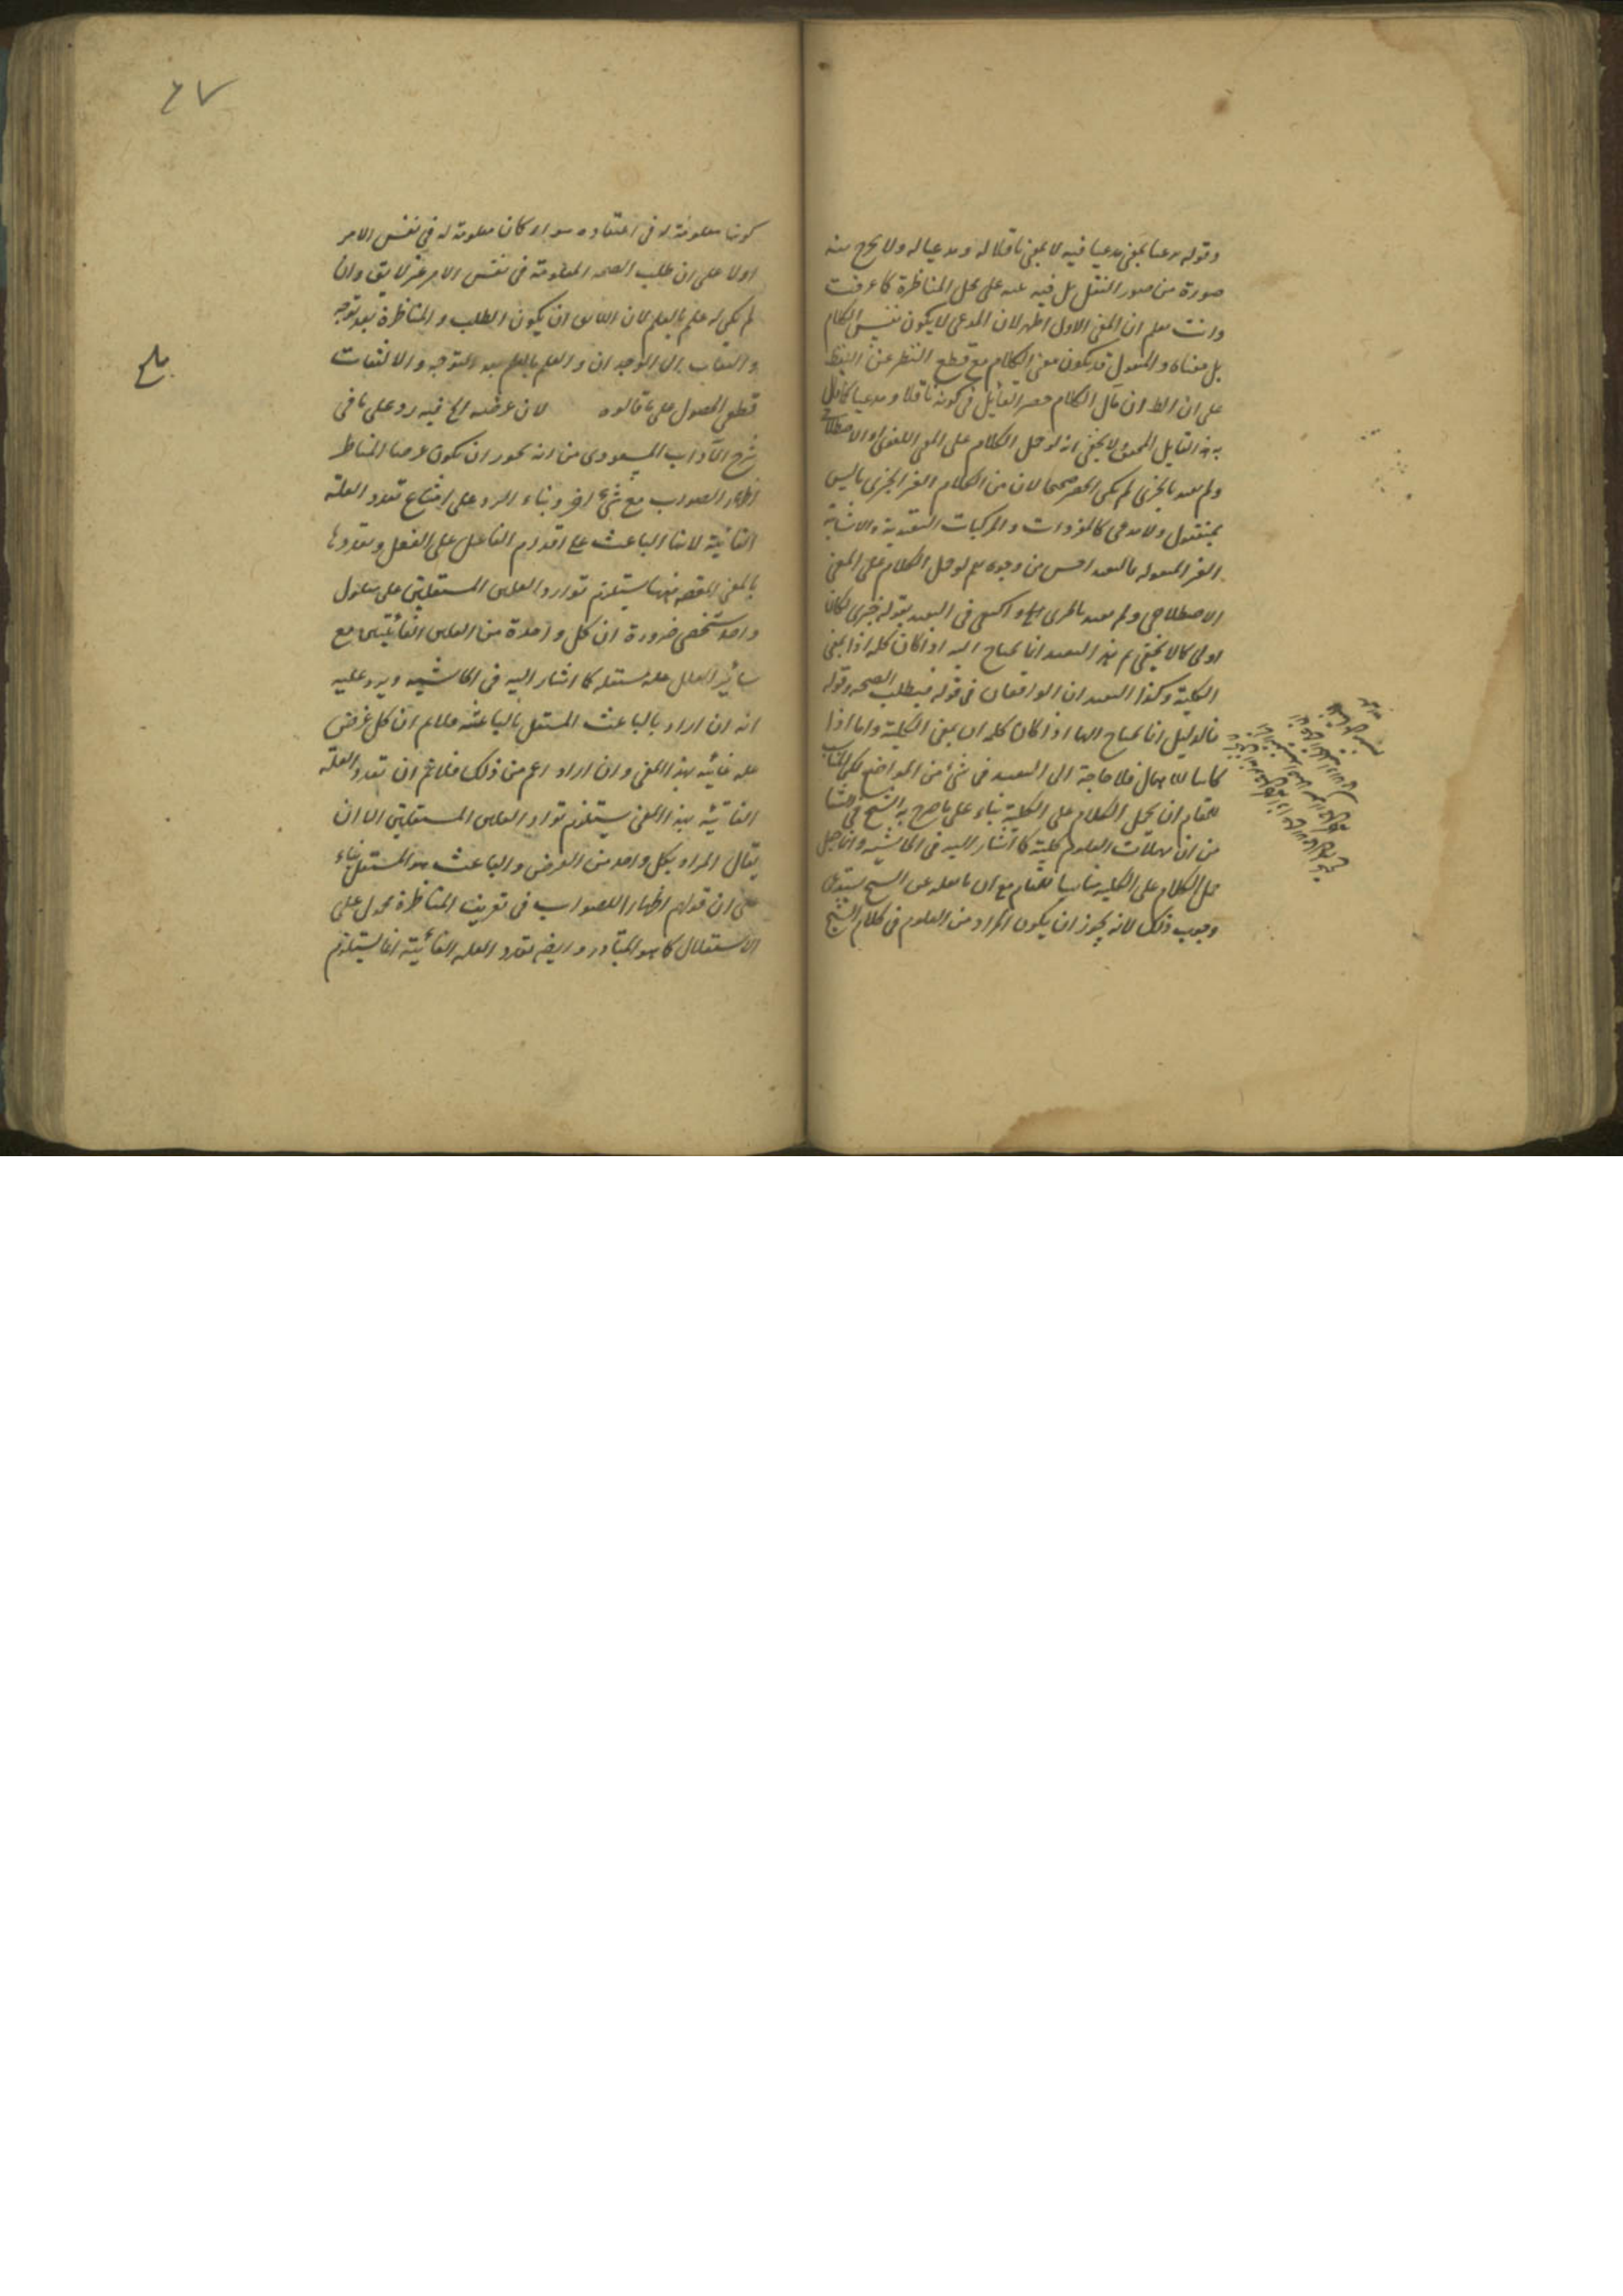 وقوله مدعيا بمعنى مدعيا فيه لا بمعنى ناقلا له ومدعيا له ولا يخرج منه
صورة من صور النقل بل فيه على محل المناظرة كما عرفت
وانت تعلم ان المعنى الاول اظهر لان المدعى لا يكون نفس الكلام
بل معناه والمنقول قد يكون معنى الكلام مع قطع النظر عن اللفظ
على ان الظ ان مآل الكلام حصر القائل في كونه ناقلا ومدعيا كما قال
به هذا القايل المحقق لا يخفى انه لو حمل الكلام على المعنى اللغوى او الاصطلاحى
ولم يقيد بالخبرى لم يكن الحصر صحيحا لان من الكلام الغير الخبرى ما ليس
بمنقول ولا مدعى كالمفردات والمركبات التقييدية والانشائية
الغير المنقولة فالتقييد احسن من وجوه نعم لو حمل الكلام على المعنى
الاصطلاحى ولم يقيد بالخبرى واكتفى في التقييد بقوله خبرى لكان
اولى كما لا يخفى ثم هذا التقييد انما يحتاج اليه اذا كان كلمة اذا بمعنى
الكلية وكذا التقييد ان الواقعان في قوله فيطلب الصحة وقوله
فالدليل انما يحتاج اليها اذا كان كلمة ان بمعنى الكلية واما اذا
كانتا للاهمال فلا حاجة الى التقييد في شئ من المواضع لكن المناسب
للمقام ان يحمل الكلام على الكلية بناء على ما صرح به الشيخ في الشفا
من ان مهملات العلوم كلية كما اشار اليه في الحاشية وانما جعل
حمل الكلام على الكلية مناسبا للمقام مع ان ما نقله عن الشيخ يستدعى
وجوب ذلك لانه يجوز ان يكون المراد من العلوم في كلام الشيخ
٦٧
كونها معلومة له في اعتقاده سواء كان معلومة له في نفس الامر
اولا على ان طلب الصحة المعلومة في نفس الامر غير لايق وان
لم يكن له علم بالعلم لان اللائق ان يكون الطلب والمناظرة بعد توجه
والتفات الى الوجدان والعلم بالعلم بعد التوجه والالتفات
قطعى الحصول على ما قالوه لان غرضه الخ فيه رد على ما في
بلغ
شرح الآداب المسعودى من انه يجوز ان يكون غرض المناظر
اظهار الصواب مع شئ اخر وبناء الرد على امتناع تعدد العلة
الغائية لانها الباعث على اقدام الفاعل على الفعل وتعددها
بالمعنى المقصود منها يستلزم توارد العلتين المستقلتين على معلول
واحد شخصى ضرورة ان كل واحدة من العلتين الغائيتين مع
سائر العلل علة مستقلة كما اشار اليه في الحاشية ويرد عليه
انه ان اراد بالباعث المستقل بالباعثية فلا نم ان كل غرض
علة غائية بهذا المعنى وان اراد اعم من ذلك فلا نم ان تعدد العلة
الغائية بهذا المعنى يستلزم توارد العلتين المستقلتين الا ان
يقال المراد بكل واحد من الغرض والباعث هو المستقل بناء
على ان قولهم اظهارا للصواب في تعريف المناظرة محمول على
الاستقلال كما هو المتبادر وايضا تعدد العلة الغائية انما يستلزم